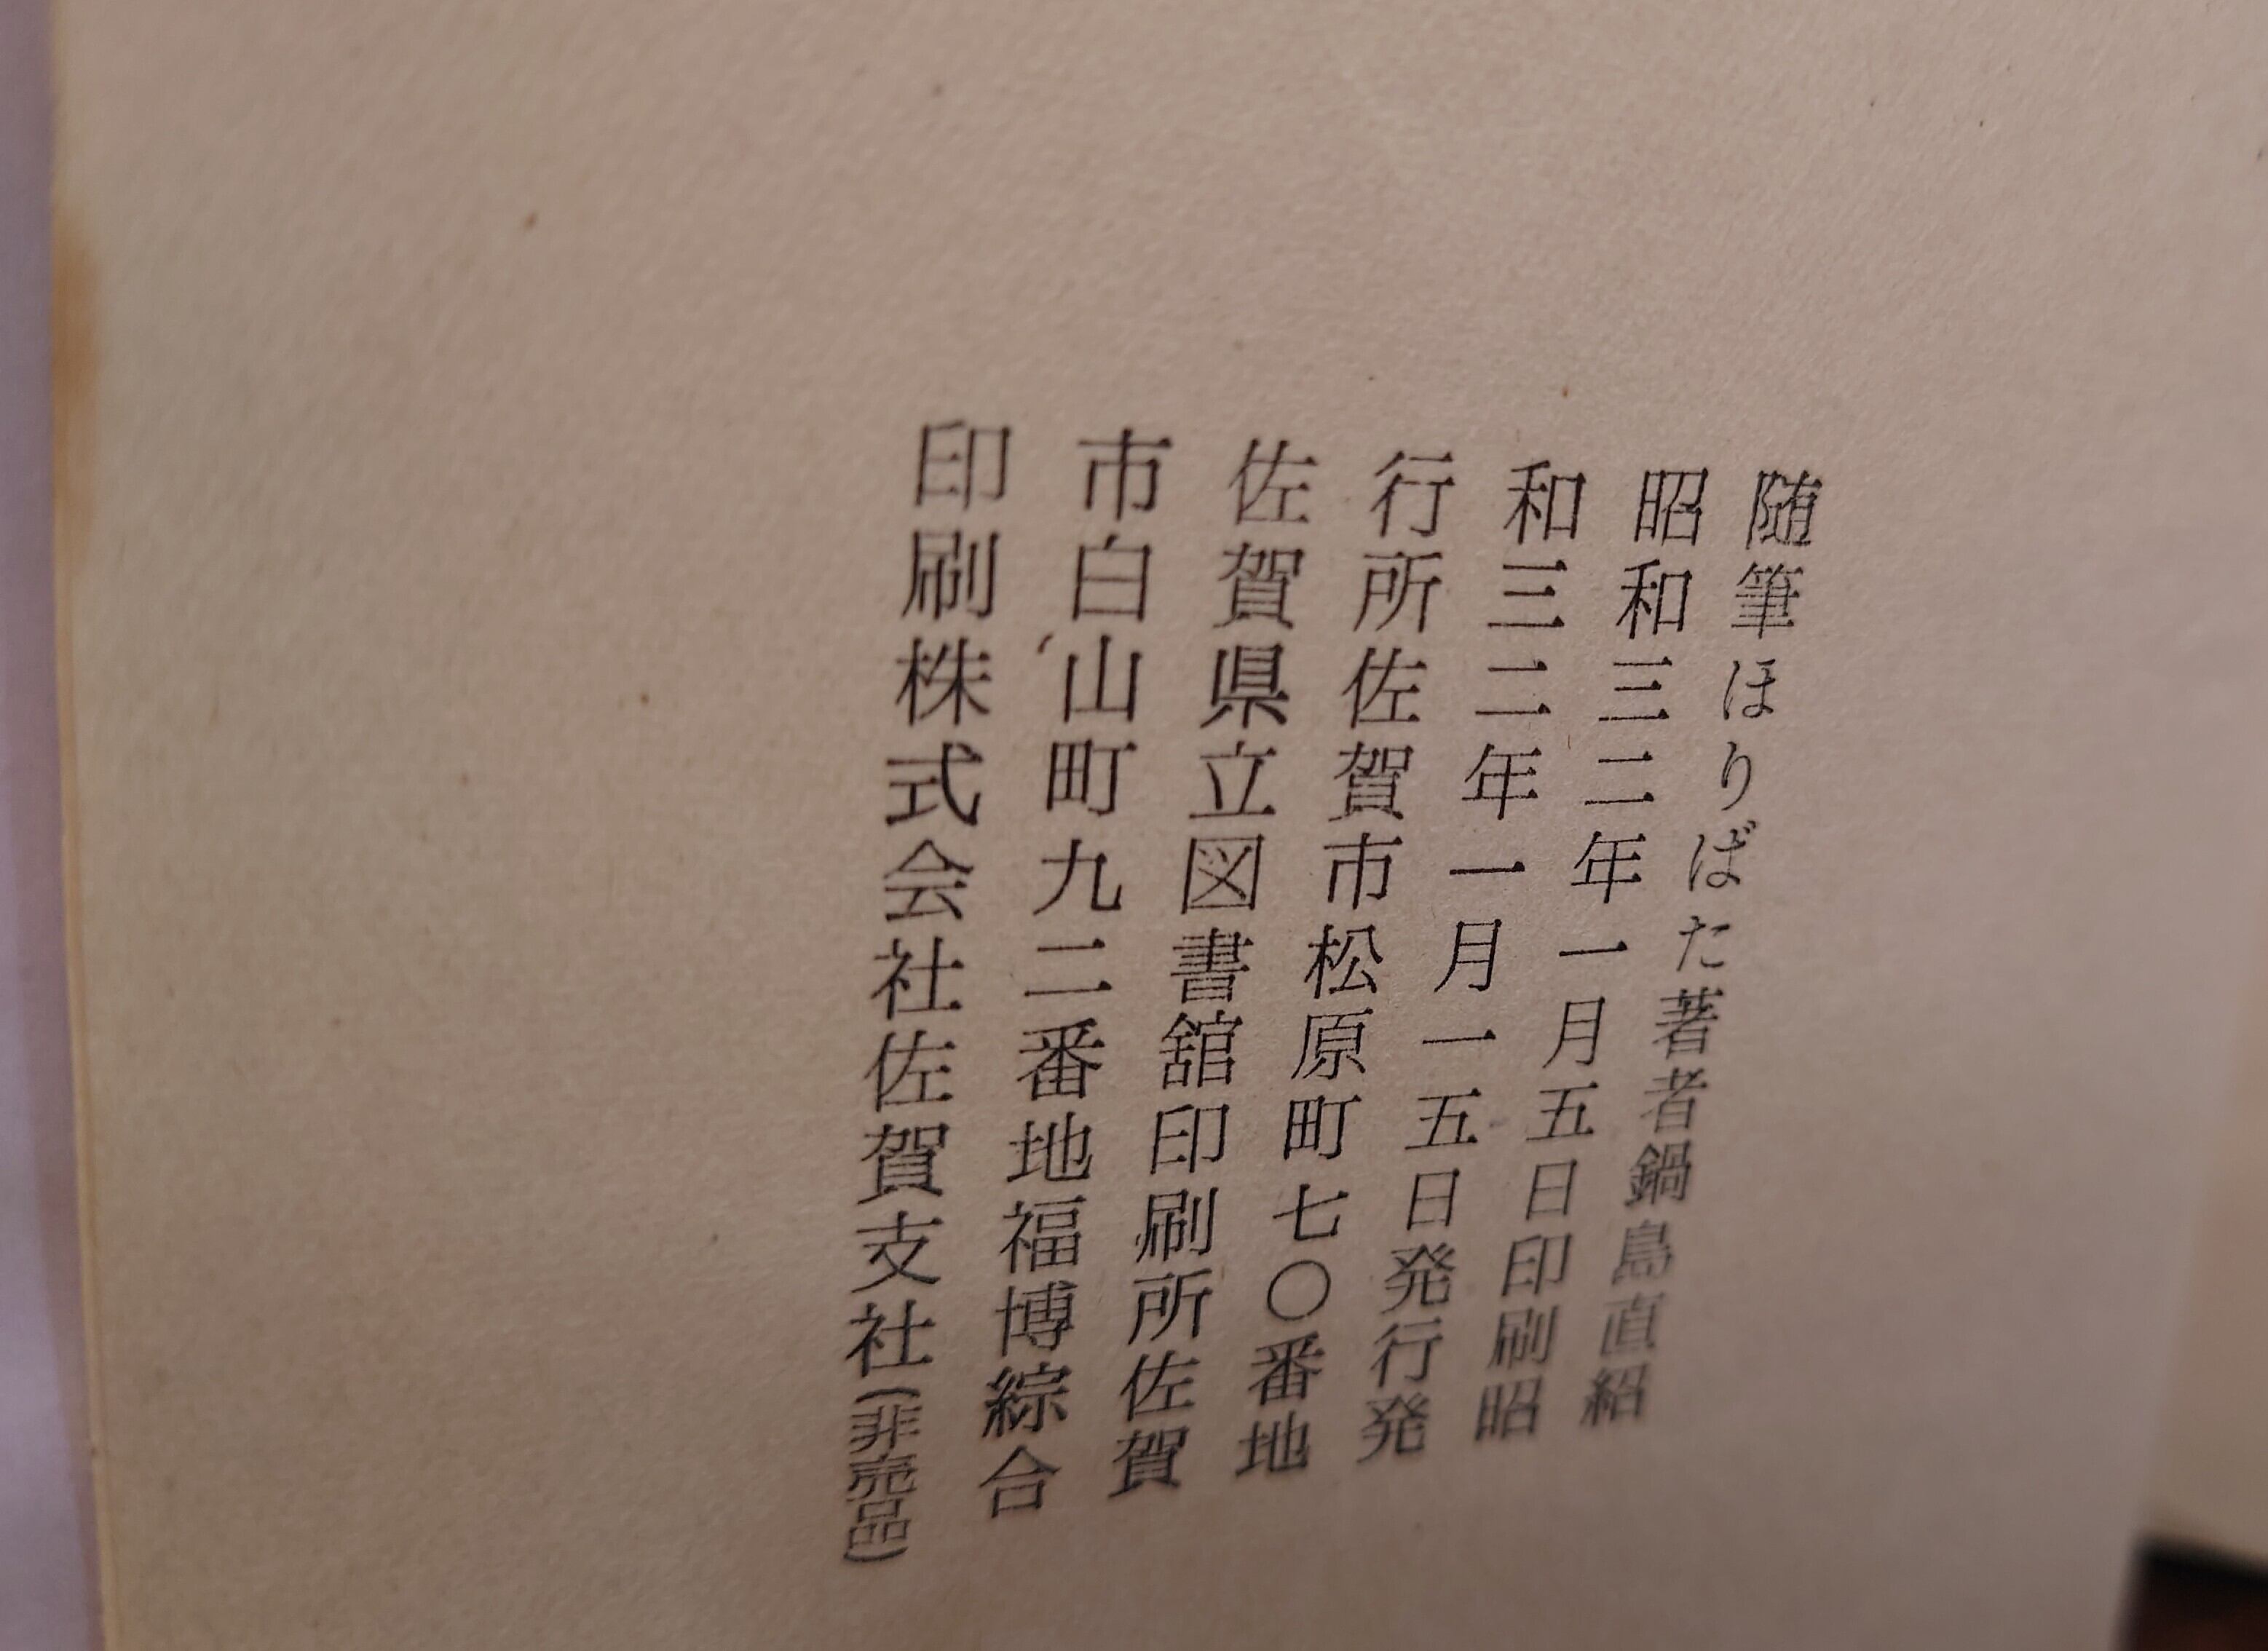 随筆ほりばた著者鍋島直紹
昭和三二年一月五日印刷昭
和三二年一月一五日発行発
行所佐賀市松原町七〇番地
佐賀県立図書舘印刷所佐賀
市白山町九二番地福博綜合
印刷株式会社佐賀支社(非売品)